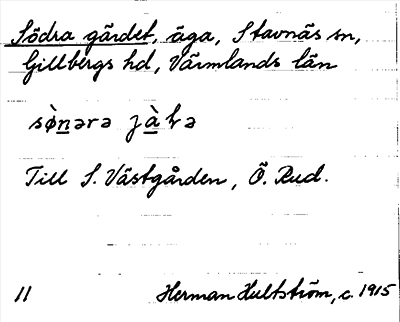 Södra gärdet, äga, Stavnäs sn,
Gillbergs hd, Värmlands län
sὸnərə jàlə
Till S. Västgården, Ö. Rud.
11 Herman Hultström, c. 1915